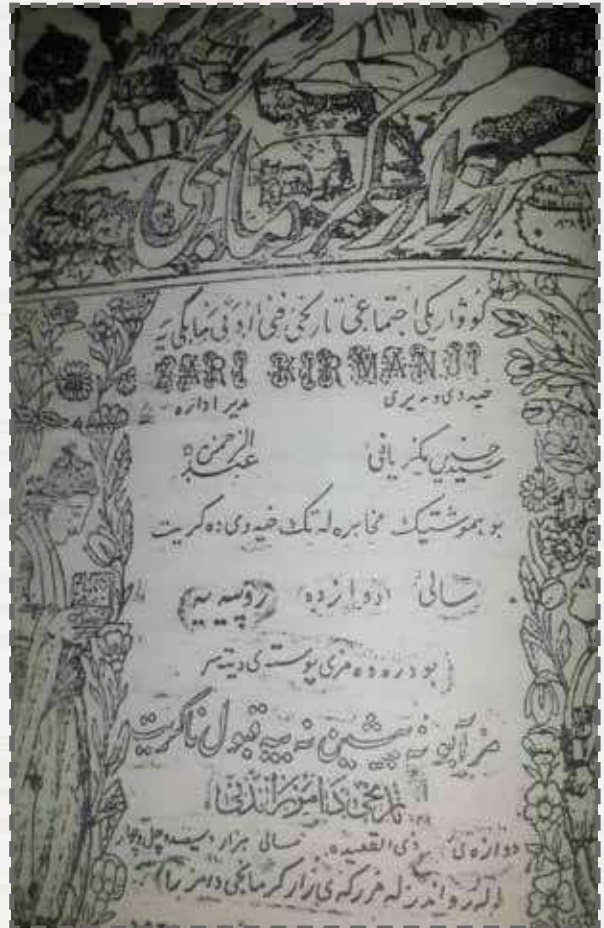 زار کرمانجی
گوواریکی اجتماعی تاریخی فنی ادبی مانگی یه
ZARI KIRMANJI
خیوی و مدیری مدیر اداره
سید حسین مکریانی عبدالرحمن
بو هموشتیک مخابره له تک خیوی ده کریت
سالی (دوازده) روپیه یه
بو دره وه مزی پوسته ی دیته سر
هرآبونه پیشین نه بیه قبول ناکریت
تاریخی دامزراندنی
دوازه ی ذی القعیده سالی هزار و سیصد و چل و چار
(له رواندز له مرکه ی زار کرمانجی دامزرا)